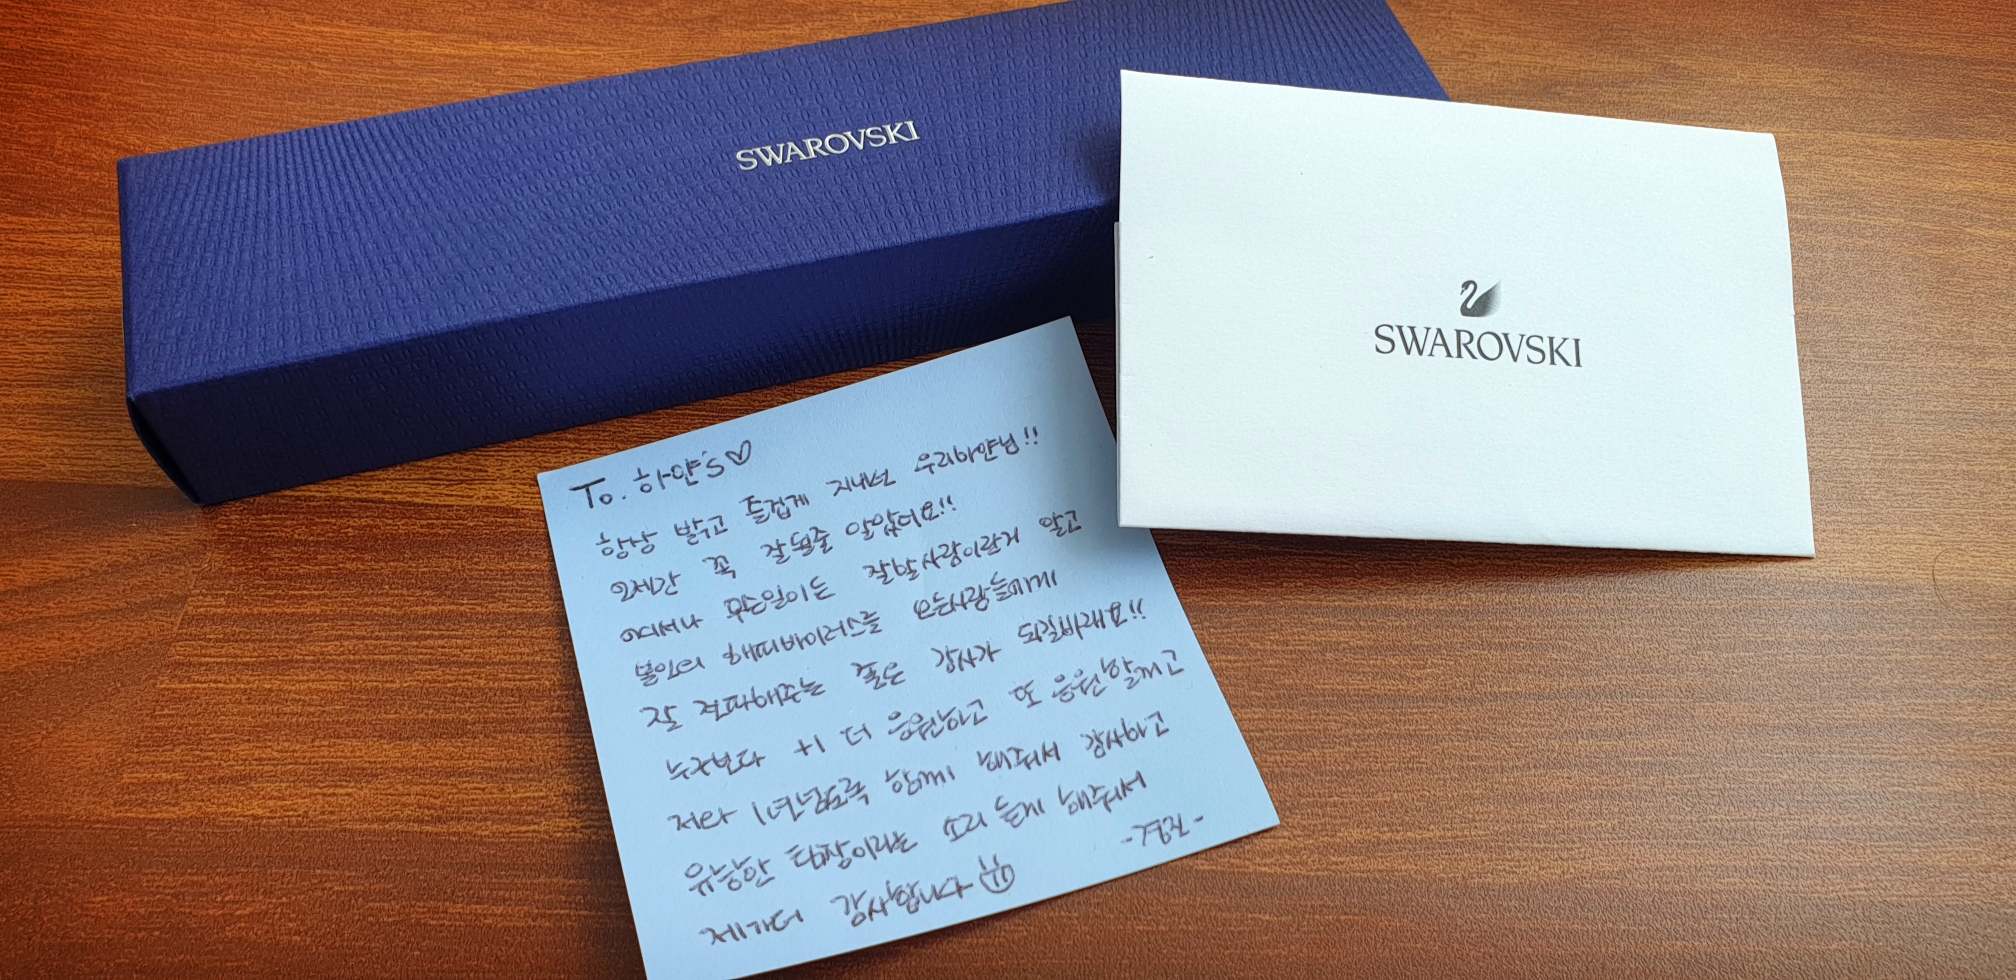 SWAROVSKI
SWAROVSKI
To. 하얀's♡
항상 밝고 즐겁게 지내던 우리하얀님!!
언제간 꼭 잘될줄 알았더요!!
어디서나 모든일이든 잘할사람이란거 알고
본인의 해피바이러스를 모든사람들에게
잘 전파해주는 좋은 강사가 되길바래요!!
누구보다 +1 더 응원하고 또 응원할께고
저와 1년넘도록 함께 해줘서 감사하고
유능한 팀장이라는 소리 듣게 해줘서
제가더 감사합니다